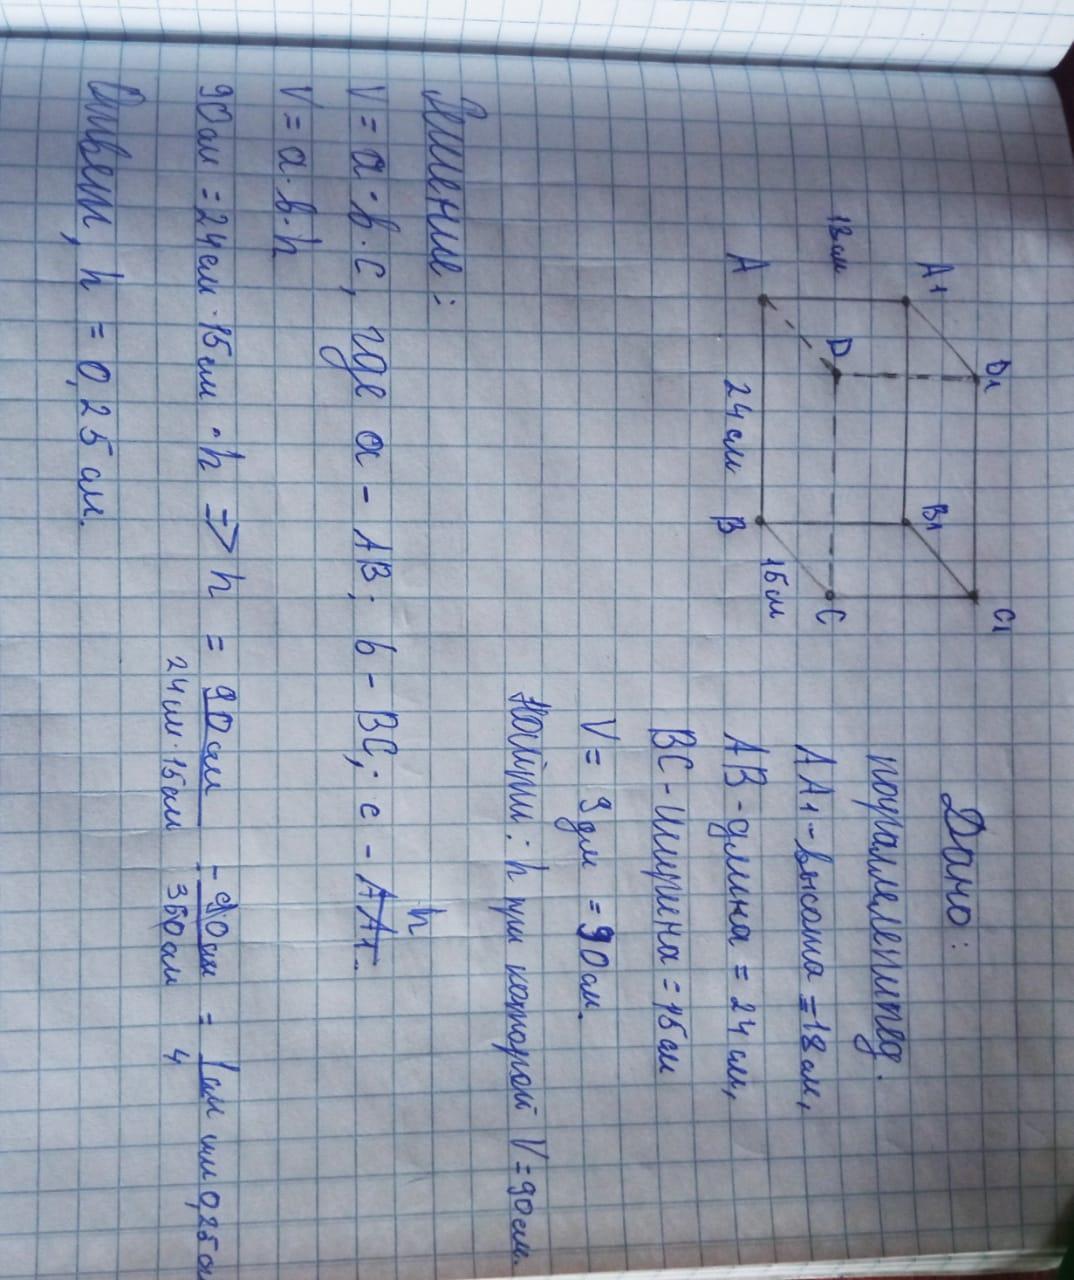 Дано:
параллелепипед.
AA1 - высота = 18 см,
AB - длина = 24 см,
BC - ширина = 15 см
V = 9 дм = 90 см.
Найти: h при которой V = 90 см.
A1 D1 B1 C1
18 см
A D B C
24 см
15 см
Решение:
V = a · b · c, где a - AB; b - BC; c - AA1. h
V = a · b · h
90 см = 24 см · 15 см · h => h = 90 см / 24 см · 15 см = 90 см / 360 см = 1 см / 4 или 0,25 см
Ответ, h = 0,25 см.